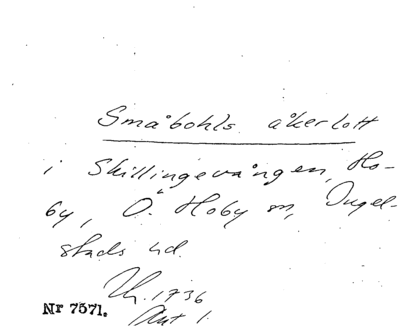 Småbohls åkerlott
i Skillingevången, Ho-
by, Ö. Hoby sn, Ingel-
stads hd.
Lh. 1736
Akt 1.
Nr 7571.